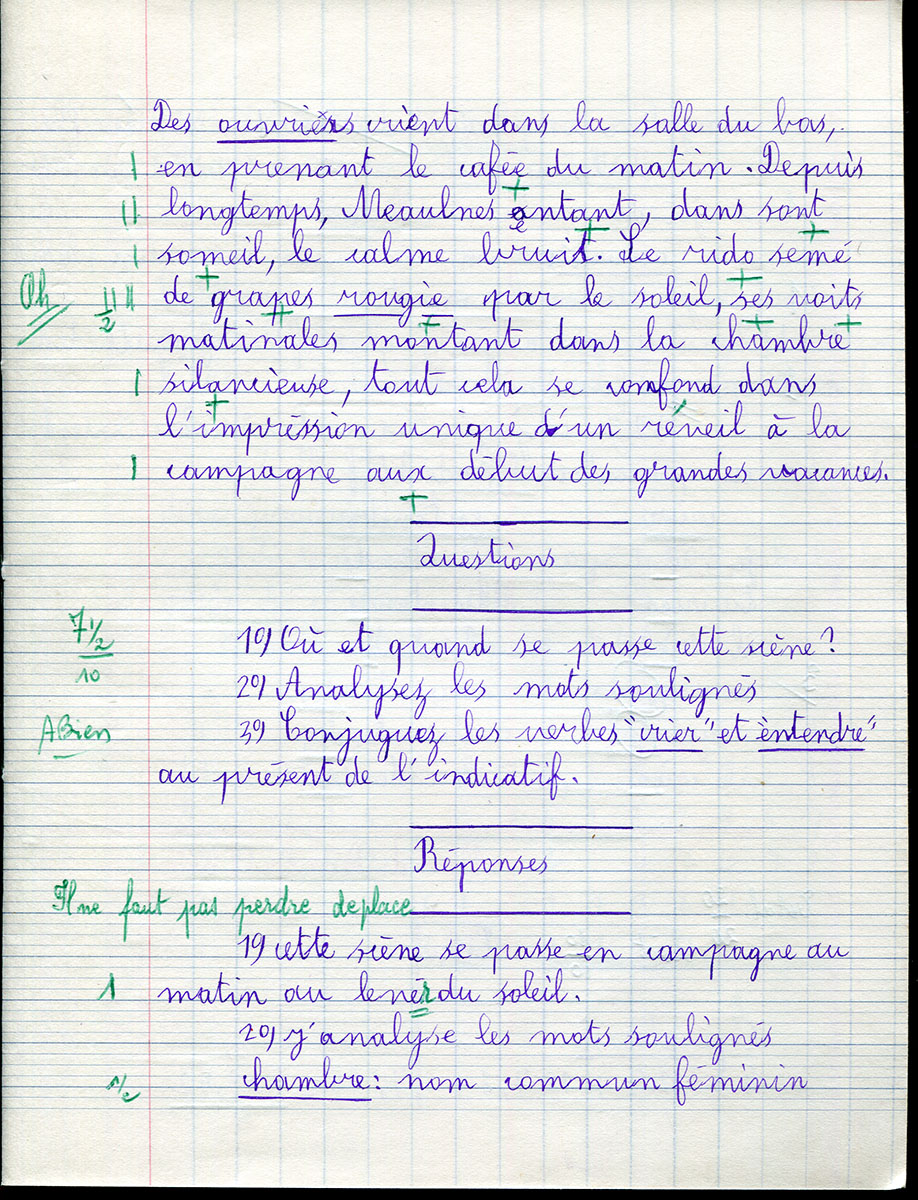 Des ouvriers crient dans la salle du bas,
en prenant le cafée du matin. Depuis
longtemps, Meaulnes entant, dans sont
someil, le calme bruit. Le rido semé
Oh
de grapes rougie par le soleil, ses voits
matinales montant dans la chambre
silancieuse, tout cela se confond dans
l'impréssion unique d'un réveil à la
campagne aux début des grandes vacances.
Questions
7 1/2
10
1º) Où et quand se passe cette scène?
2º) Analysez les mots soulignés
A Bien
3º) Conjuguez les verbes "crier" et entendre"
au présent de l'indicatif.
Réponses
Il ne faut pas perdre de place
1º cette scène se passe en campagne au
1 matin au lever du soleil.
2º) j'analyse les mots soulignés
1/2 chambre: nom commun féminin